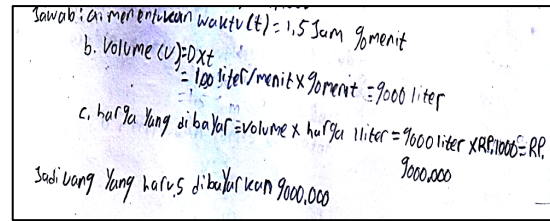 Jawab: a. menentukan waktu (t) = 1,5 Jam 90 menit
b. Volume (V) = D x t
= 100 liter/menit x 90 menit = 9000 liter
c. harga yang dibayar = volume x harga 1 liter = 9000 liter x RP.1000 = RP.
9000.000
Jadi uang yang harus dibayarkan 9000.000